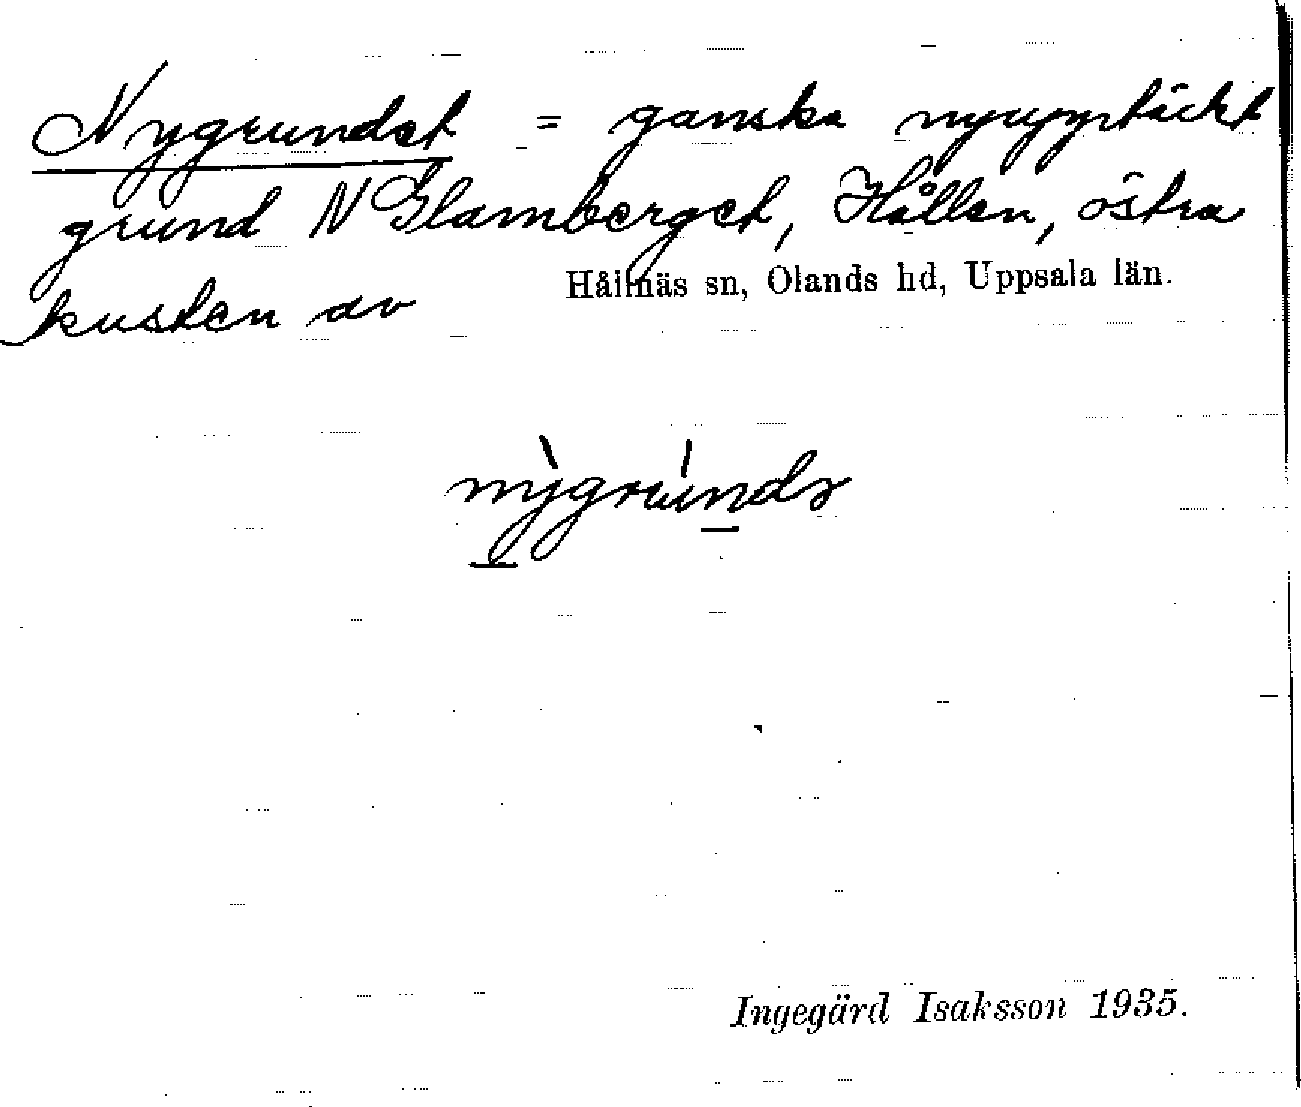 Nygrundet = ganska nyupptäckt
grund N Glamberget, Hållen, östra
kusten av Hållnäs sn, Olands hd, Uppsala län.
nỳgrúndə
Ingegärd Isaksson 1935.